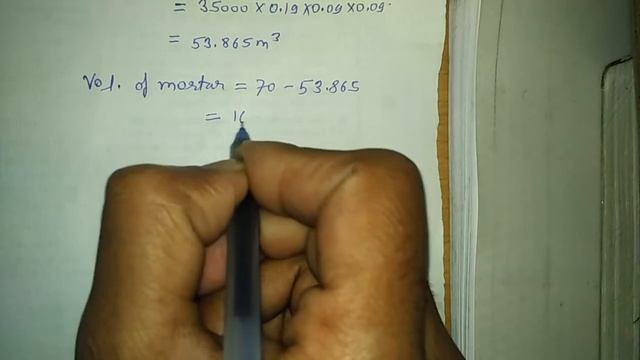 = 35000 × 0.19 × 0.09 × 0.09.
= 53.865 m³
Vol. of mortar = 70 - 53.865
= 16